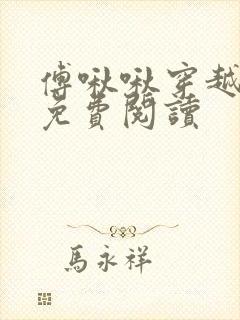 傅啾啾穿越
免費閱讀
馬永祥